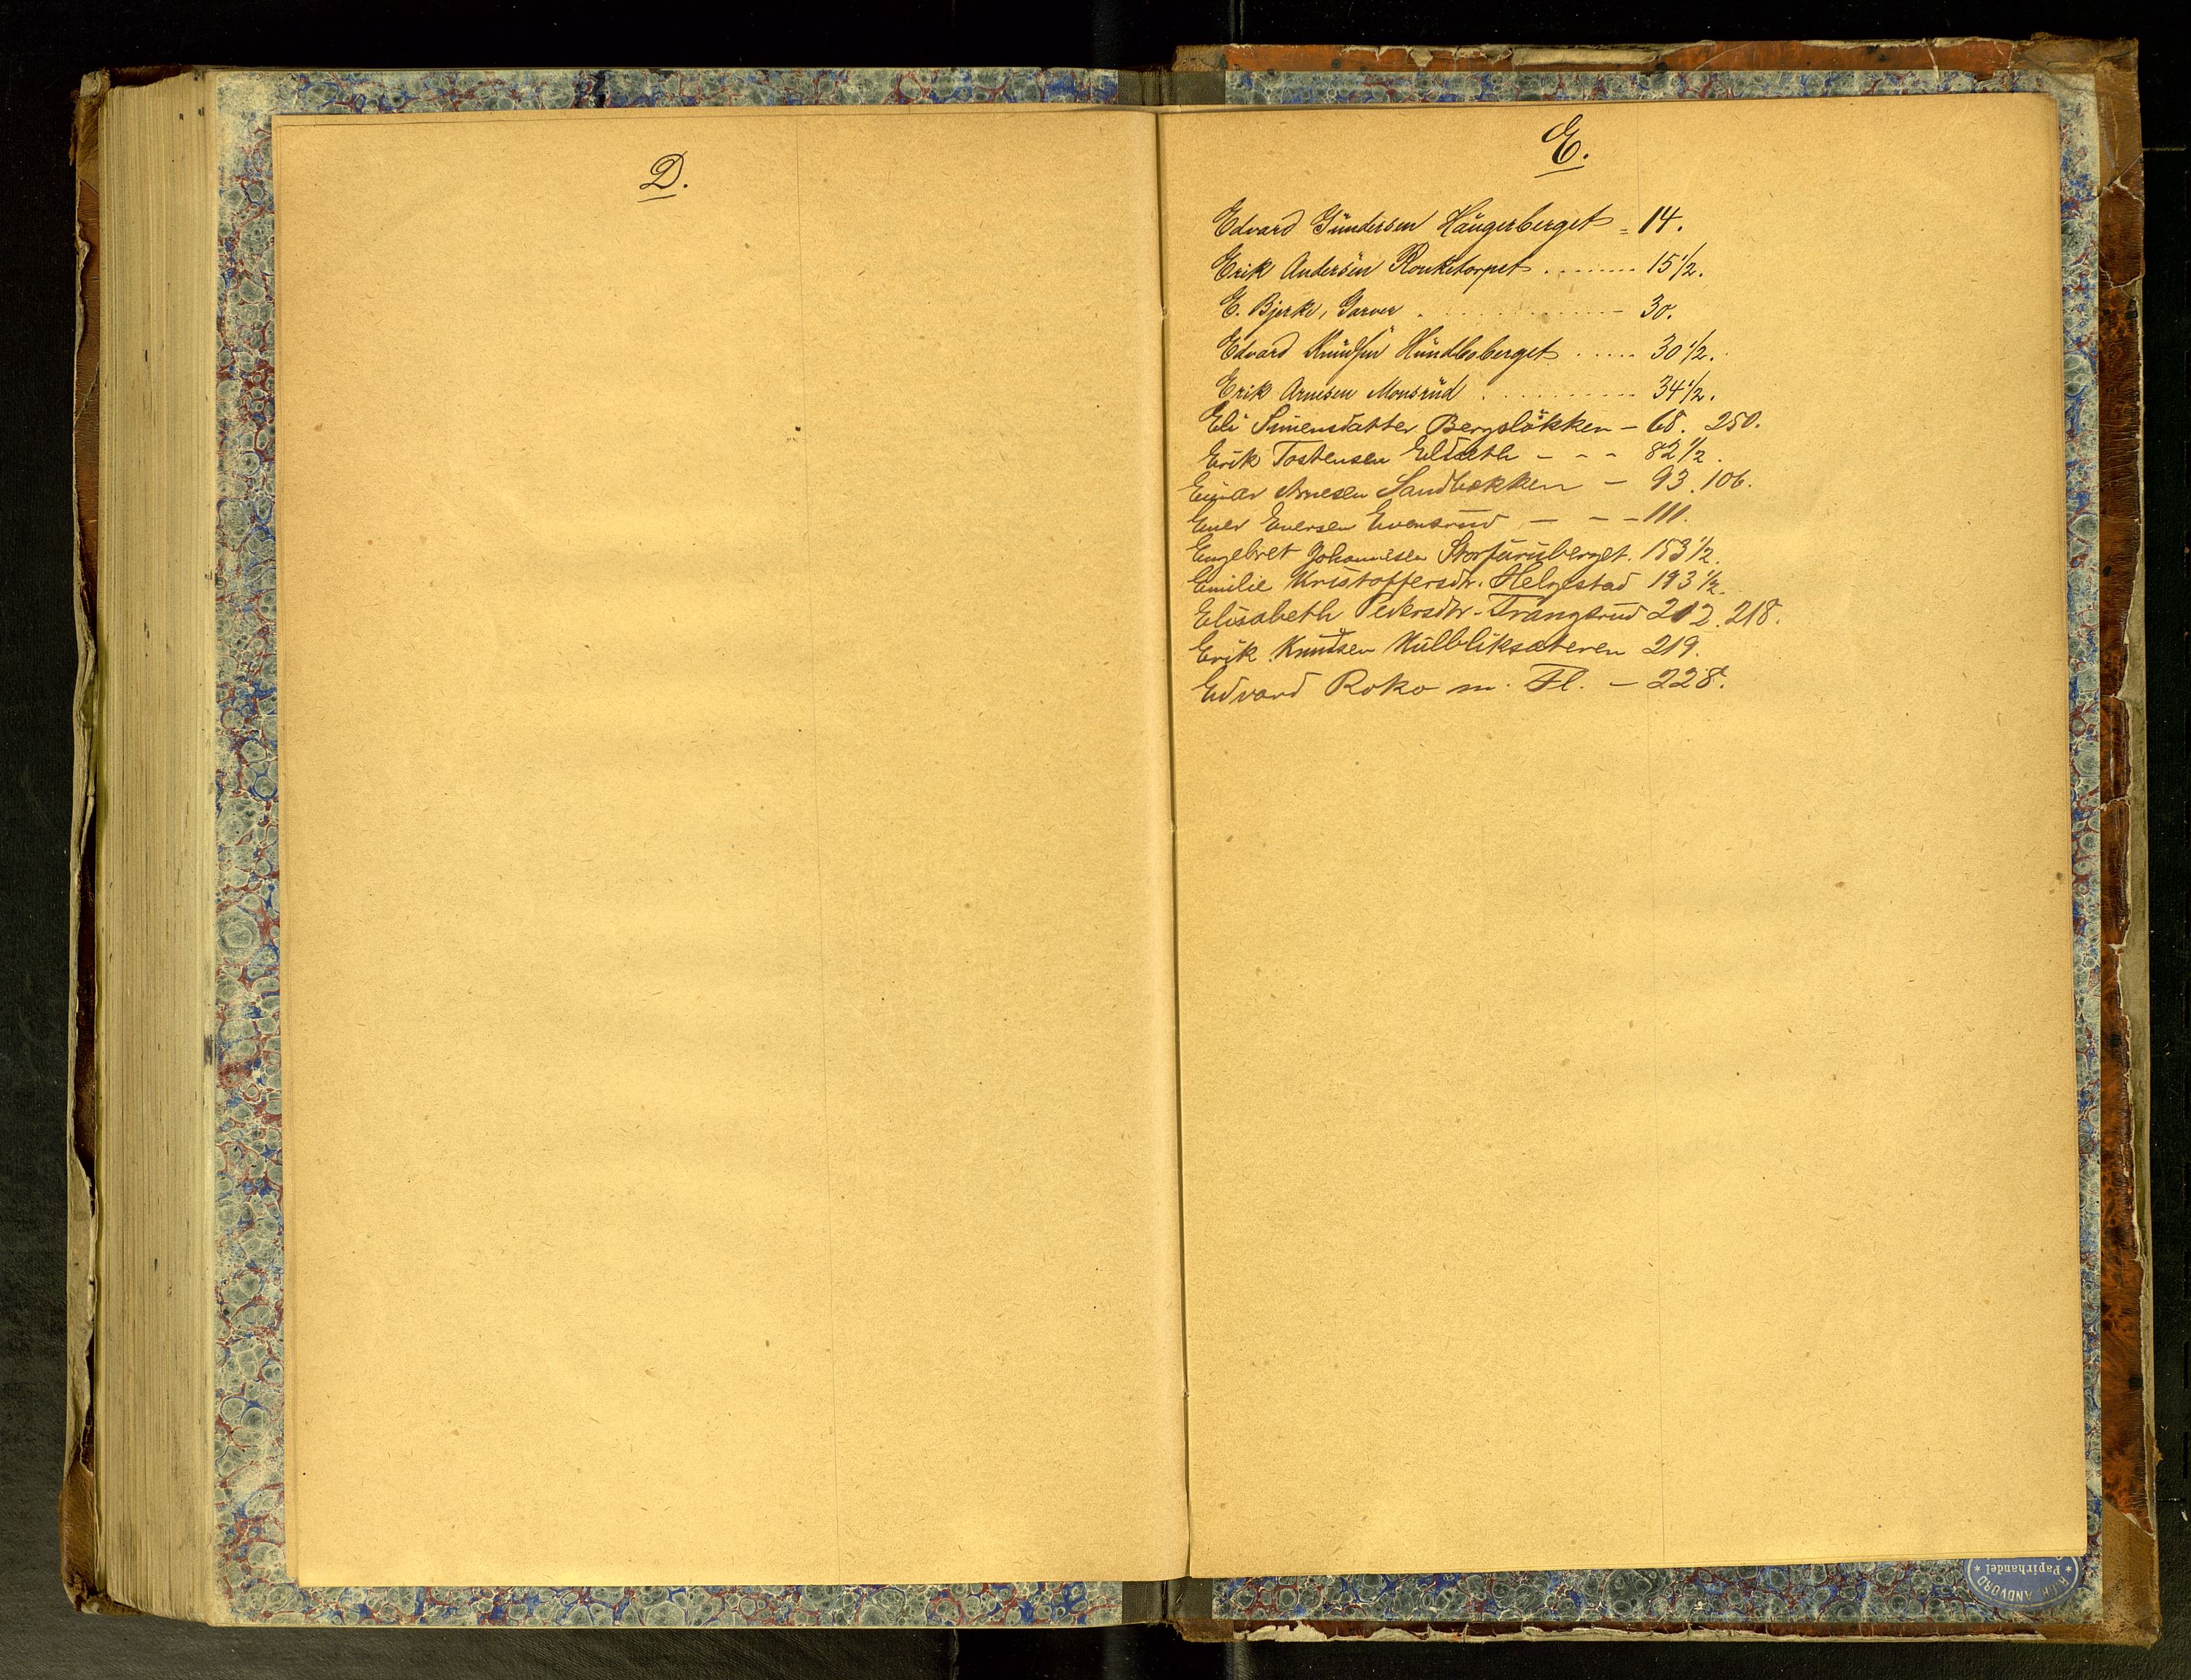 D.
E.
Edvard Gundersen Haugerberget = 14.
Erik Andersen Ronketorpet ........ 15 1/2.
E. Bjerke, Garver . . . . . . . . . 30.
Edvard Knudsen Hundboberget ..... 30 1/2.
Erik Arnesen Monsrud . . . . . . . . 34 1/2.
Eli Simensdatter Bergsløkken – 68. 250.
Erik Tostensen Eldseth – – – 82 1/2.
Einar Arnesen Sandbækken – 93. 106.
Even Evensen Evensrud – – – 111.
Engebret Johannesen Storfuruberget. 153 1/2.
Emilie Kristoffersdtr. Helgestad 193 1/2.
Elisabeth Pedersdtr. Trangsrud 212. 218.
Erik Knudsen Kulbliksæteren 219.
Edvard Roko m. Fl. – 228.
ANDVORD
* Papirhandel *